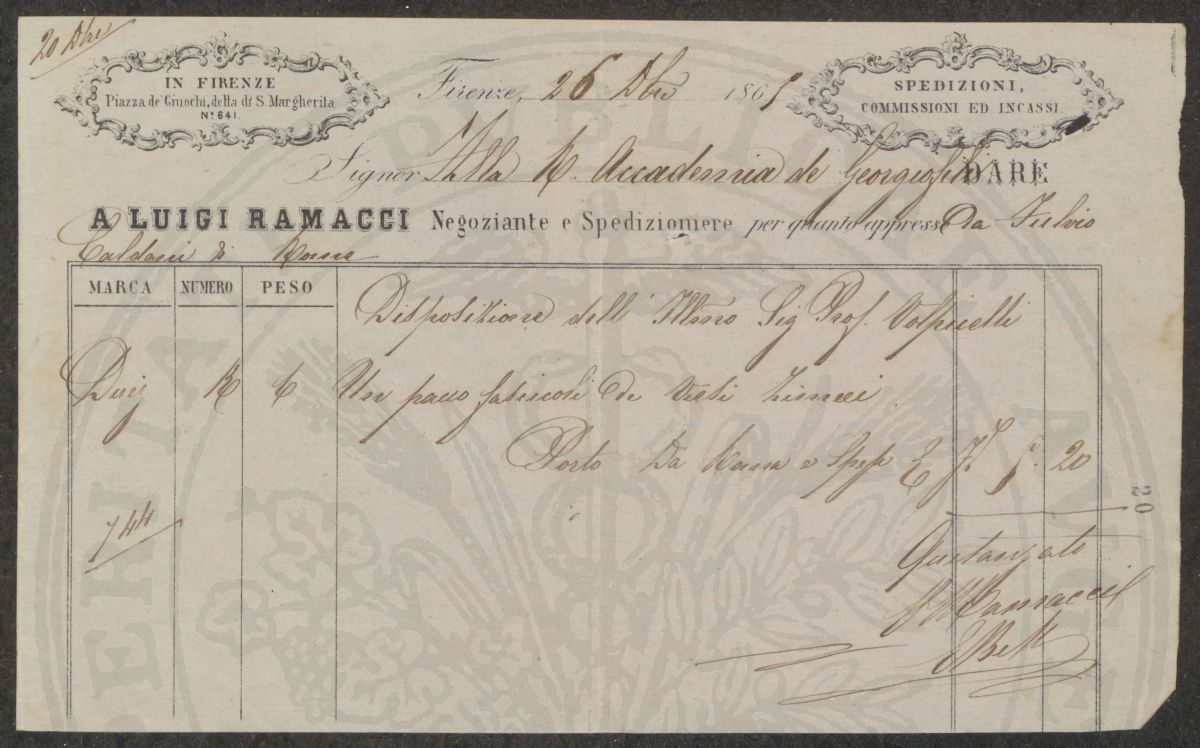 20 Dbre
IN FIRENZE
Piazza de' Giuochi, detta di S. Margherita
N.º 641.
Firenze, 26 Dbre 1865
SPEDIZIONI,
COMMISSIONI ED INCASSI
Signor Alla R. Accademia de Georgofili DARE
A LUIGI RAMACCI Negoziante e Spedizioniere per quanto appresso Da Fulvio
Caldani di Roma
MARCA NUMERO PESO
Disposizione dell' Illmo Sig Prof. Volpicelli
Un pacco fascicoli de
Porto Da Roma e Spese £ 20
744
20
Quetanzato
Ramacci